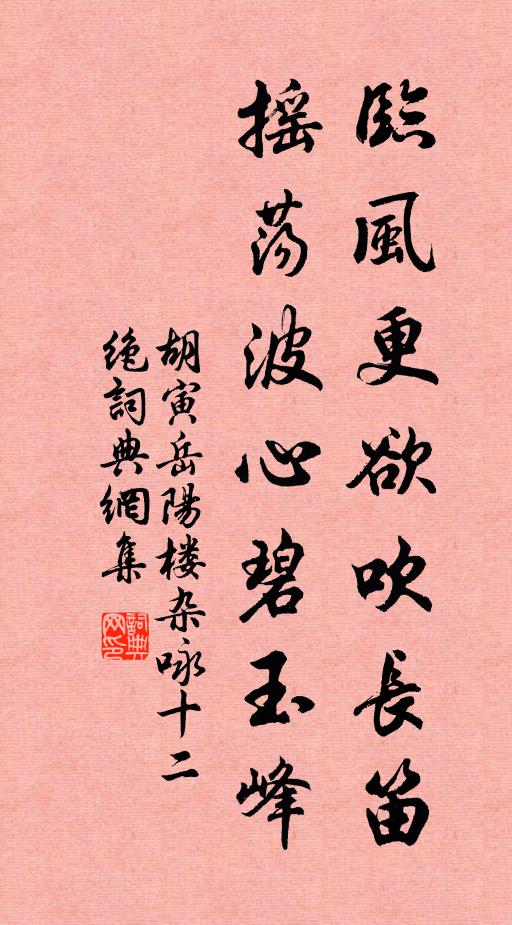 臨風更欲吹長笛
摇荡波心碧玉峰
胡寅岳陽楼杂咏十二
绝詞典網集
詞典网印